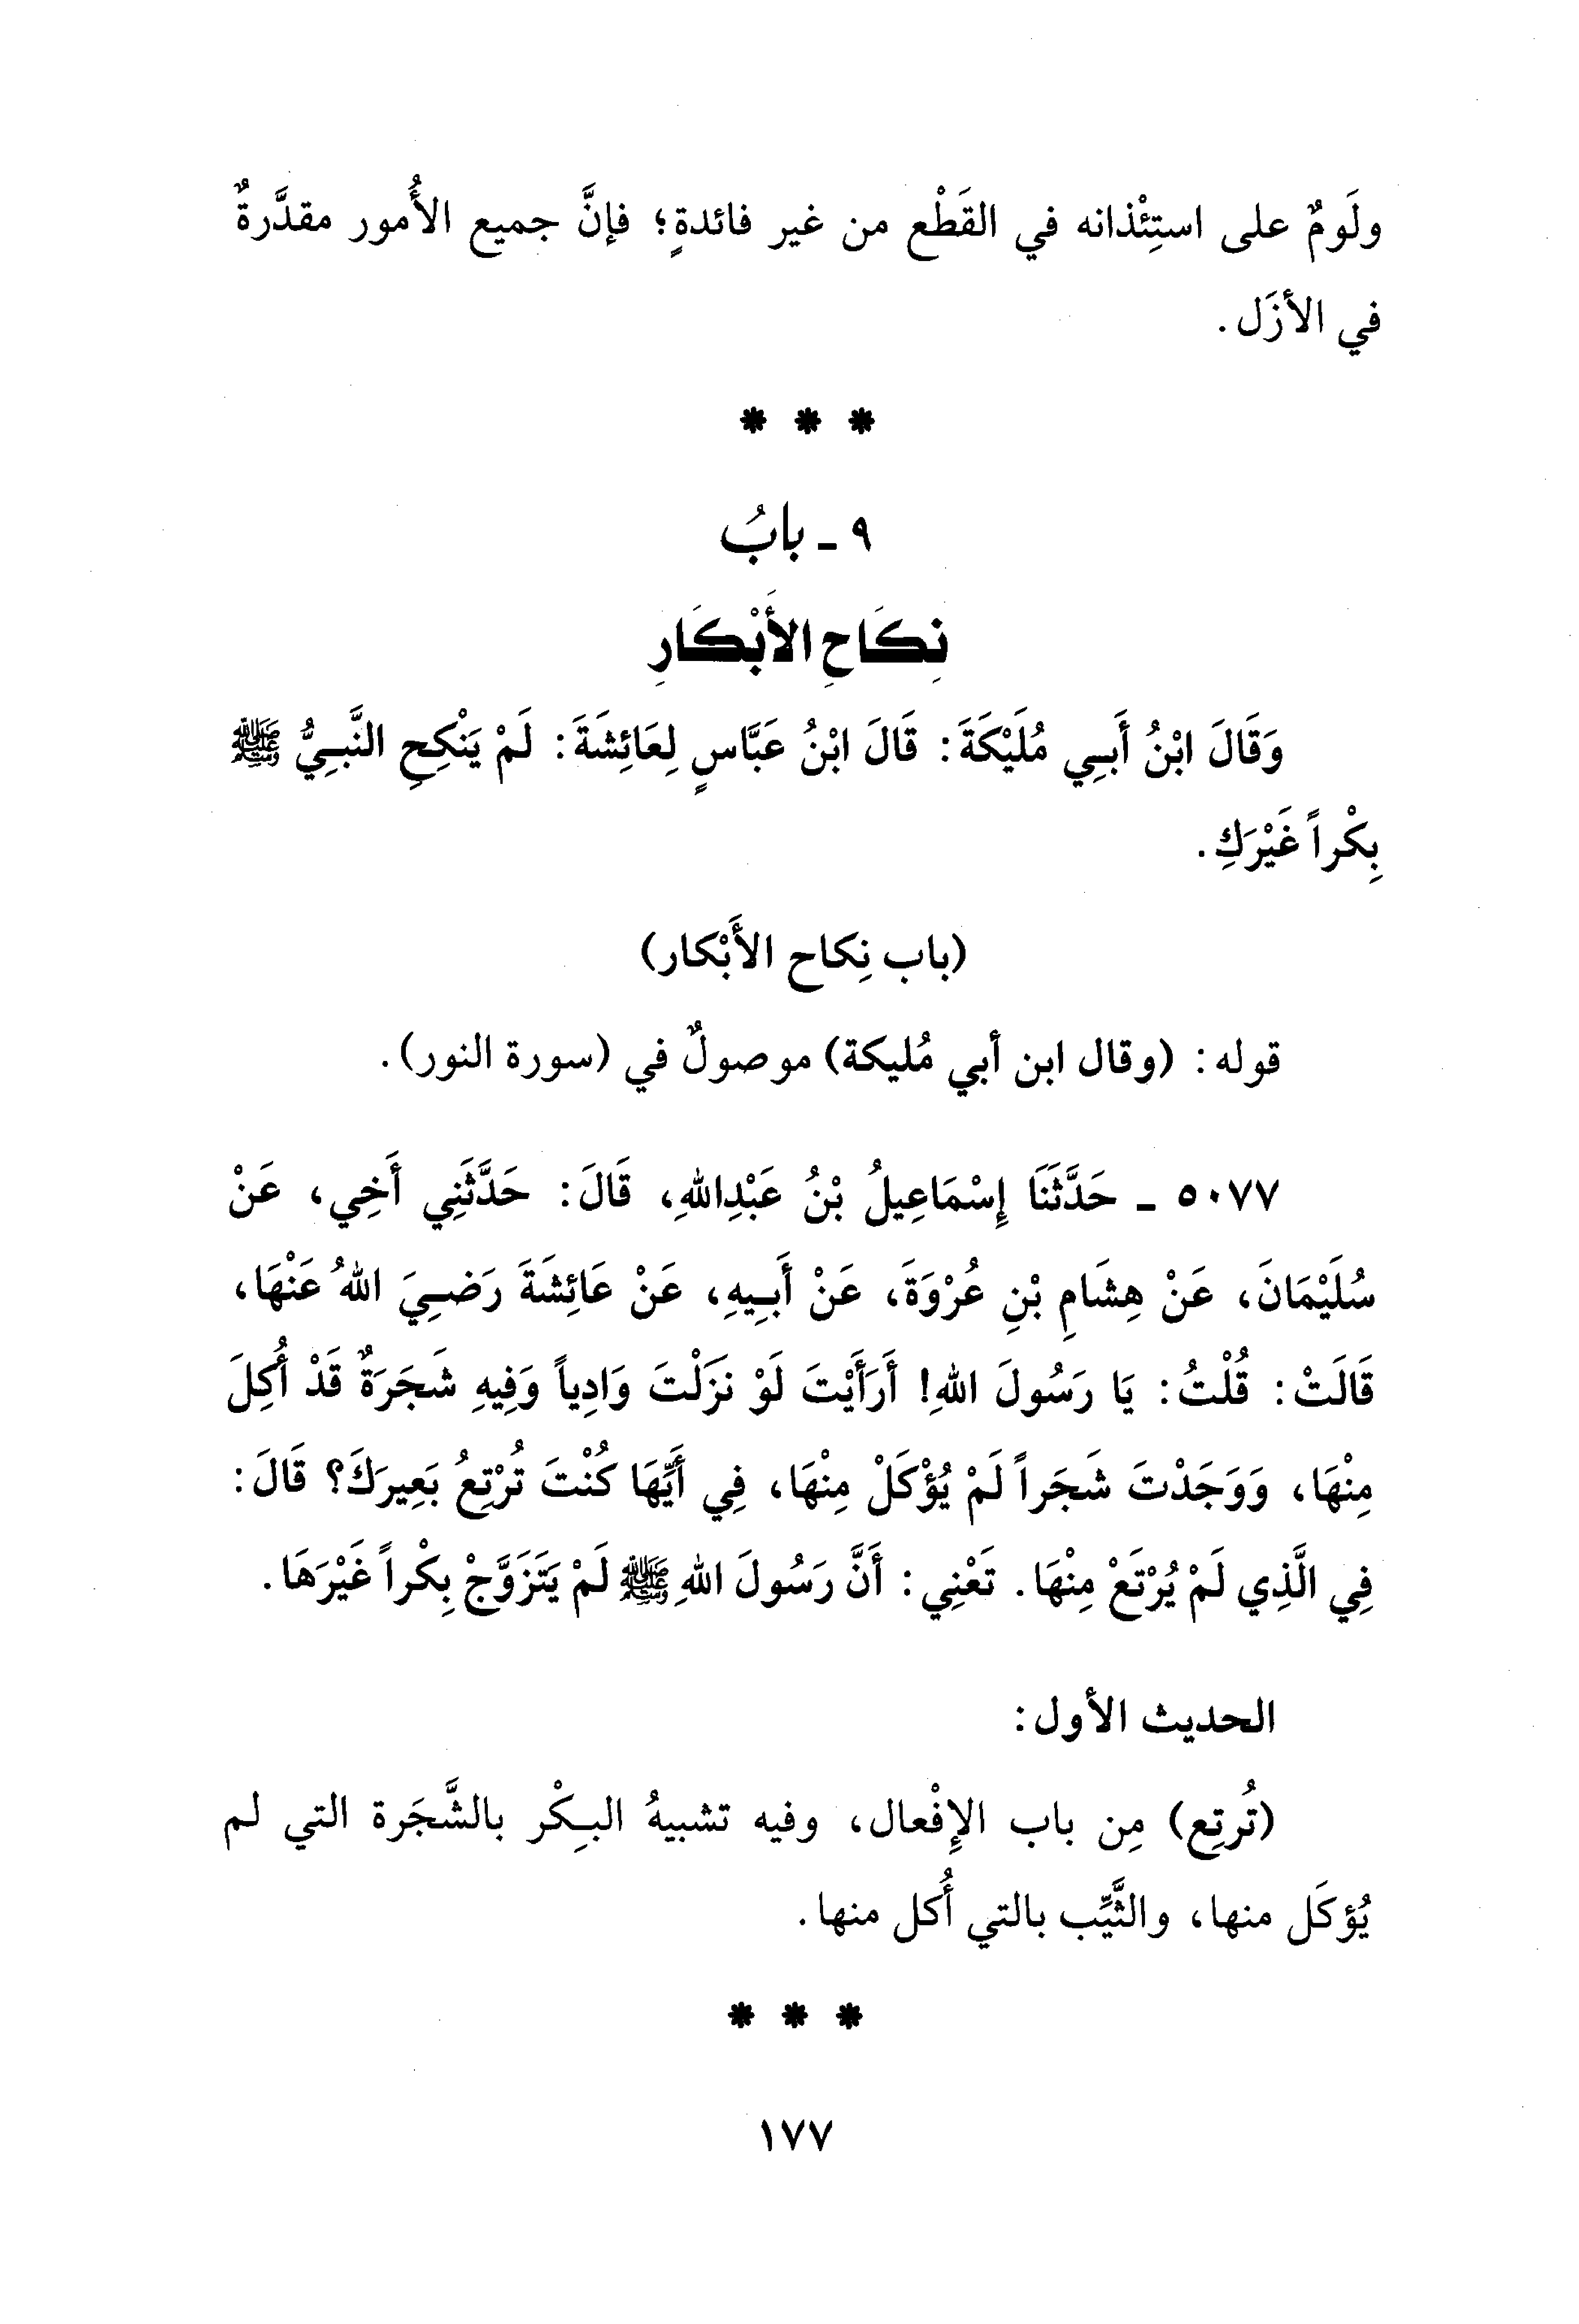 ولَومٌ على استِئْذانه في القَطْع من غير فائدةٍ؛ فإنَّ جميع الأُمور مقدَّرةٌ
في الأزَل.
* * *
٩ ـ بابُ
نِكَاحِ الأَبْكَارِ
وَقَالَ ابْنُ أَبِي مُلَيْكَةَ: قَالَ ابْنُ عَبَّاسٍ لِعَائِشَةَ: لَمْ يَنْكِحِ النَّبِيُّ ﷺ
بِكْراً غَيْرَكِ.
(باب نِكاح الأَبْكار)
قوله: (وقال ابن أبي مُليكة) موصولٌ في (سورة النور).
٥٠٧٧ ـ حَدَّثَنَا إِسْمَاعِيلُ بْنُ عَبْدِاللهِ، قَالَ: حَدَّثَنِي أَخِي، عَنْ
سُلَيْمَانَ، عَنْ هِشَامِ بْنِ عُرْوَةَ، عَنْ أَبِيهِ، عَنْ عَائِشَةَ رَضِيَ اللهُ عَنْهَا،
قَالَتْ: قُلْتُ: يَا رَسُولَ اللهِ! أَرَأَيْتَ لَوْ نَزَلْتَ وَادِياً وَفِيهِ شَجَرَةٌ قَدْ أُكِلَ
مِنْهَا، وَوَجَدْتَ شَجَراً لَمْ يُؤْكَلْ مِنْهَا، فِي أَيِّهَا كُنْتَ تُرْتِعُ بَعِيرَكَ؟ قَالَ:
فِي الَّذِي لَمْ يُرْتَعْ مِنْهَا. تَعْنِي: أَنَّ رَسُولَ اللهِ ﷺ لَمْ يَتَزَوَّجْ بِكْراً غَيْرَهَا.
الحديث الأول:
(تُرتِع) مِن باب الإِفْعال، وفيه تشبيهُ البِكْر بالشَّجَرة التي لم
يُؤكَل منها، والثَّيِّب بالتي أُكل منها.
* * *
١٧٧